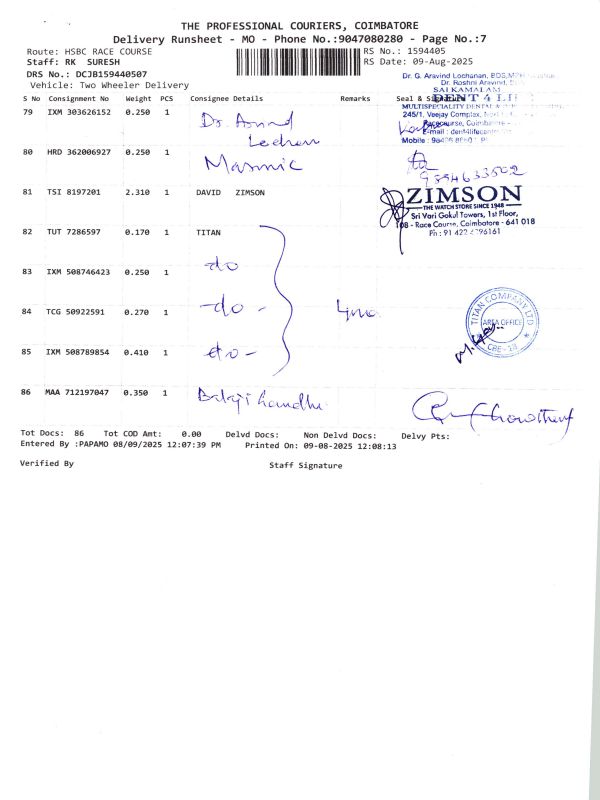 THE PROFESSIONAL COURIERS, COIMBATORE
Delivery Runsheet - MO - Phone No.:9047080280 - Page No.:7
Route: HSBC RACE COURSE
RS No.: 1594405
Staff: RK SURESH
RS Date: 09-Aug-2025
DRS No.: DCJB159440507
Vehicle: Two Wheeler Delivery
S No Consignment No Weight PCS Consignee Details Remarks Seal &
Dr. G. Aravind Lochanan, BDS,
Dr. Roshni Aravind,
SAI KAMALAM
DENT 4 LIFE
MULTISPECIALITY DENTAL &
245/1, Veejay Complex,
Racecourse, Coimbatore
E-mail :
Mobile :
79 IXM 303626152 0.250 1 Dr. Arvind
80 HRD 362006927 0.250 1
9894633502
81 TSI 8197201 2.310 1 DAVID ZIMSON
ZIMSON
THE WATCH STORE SINCE 1948
Sri Vari Gokul Towers, 1st Floor,
108 - Race Course, Coimbatore - 641 018
Ph : 91 422 4396161
82 TUT 7286597 0.170 1 TITAN
83 IXM 508746423 0.250 1 do
84 TCG 50922591 0.270 1 -do- 4no.
TITAN COMPANY LTD
AREA OFFICE
CBE - 18
85 IXM 508789854 0.410 1 do-
86 MAA 712197047 0.350 1 Balaji
Tot Docs: 86 Tot COD Amt: 0.00 Delvd Docs: Non Delvd Docs: Delvy Pts:
Entered By :PAPAMO 08/09/2025 12:07:39 PM Printed On: 09-08-2025 12:08:13
Verified By Staff Signature